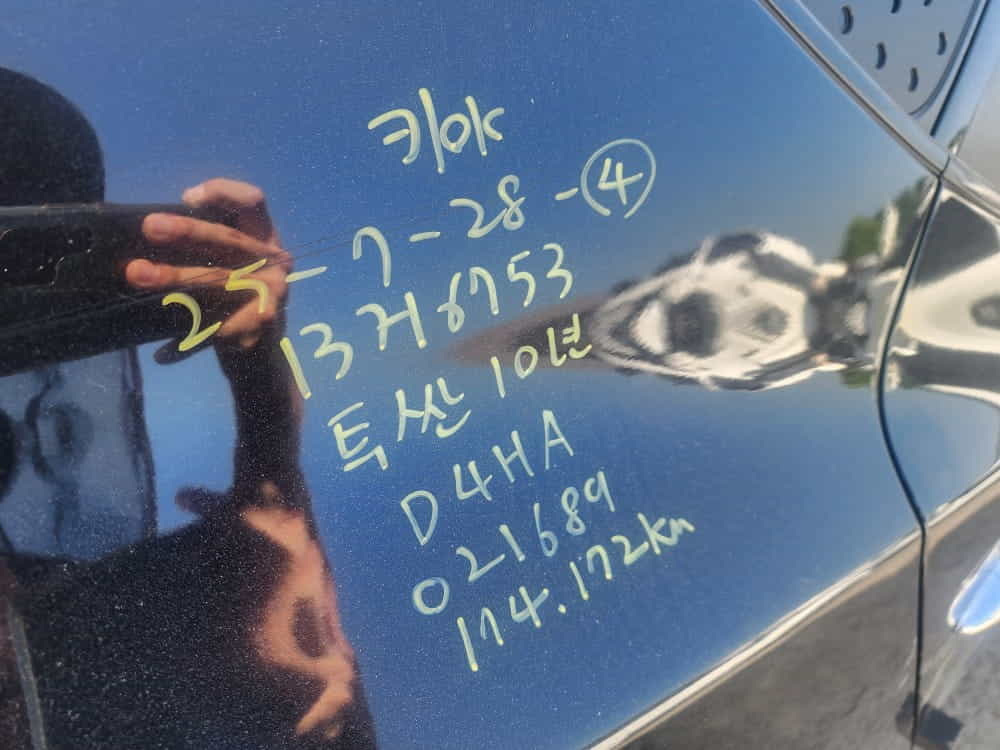 키아
25-7-28-④
13거6753
투싼 10년
D4HA
021689
174.172km